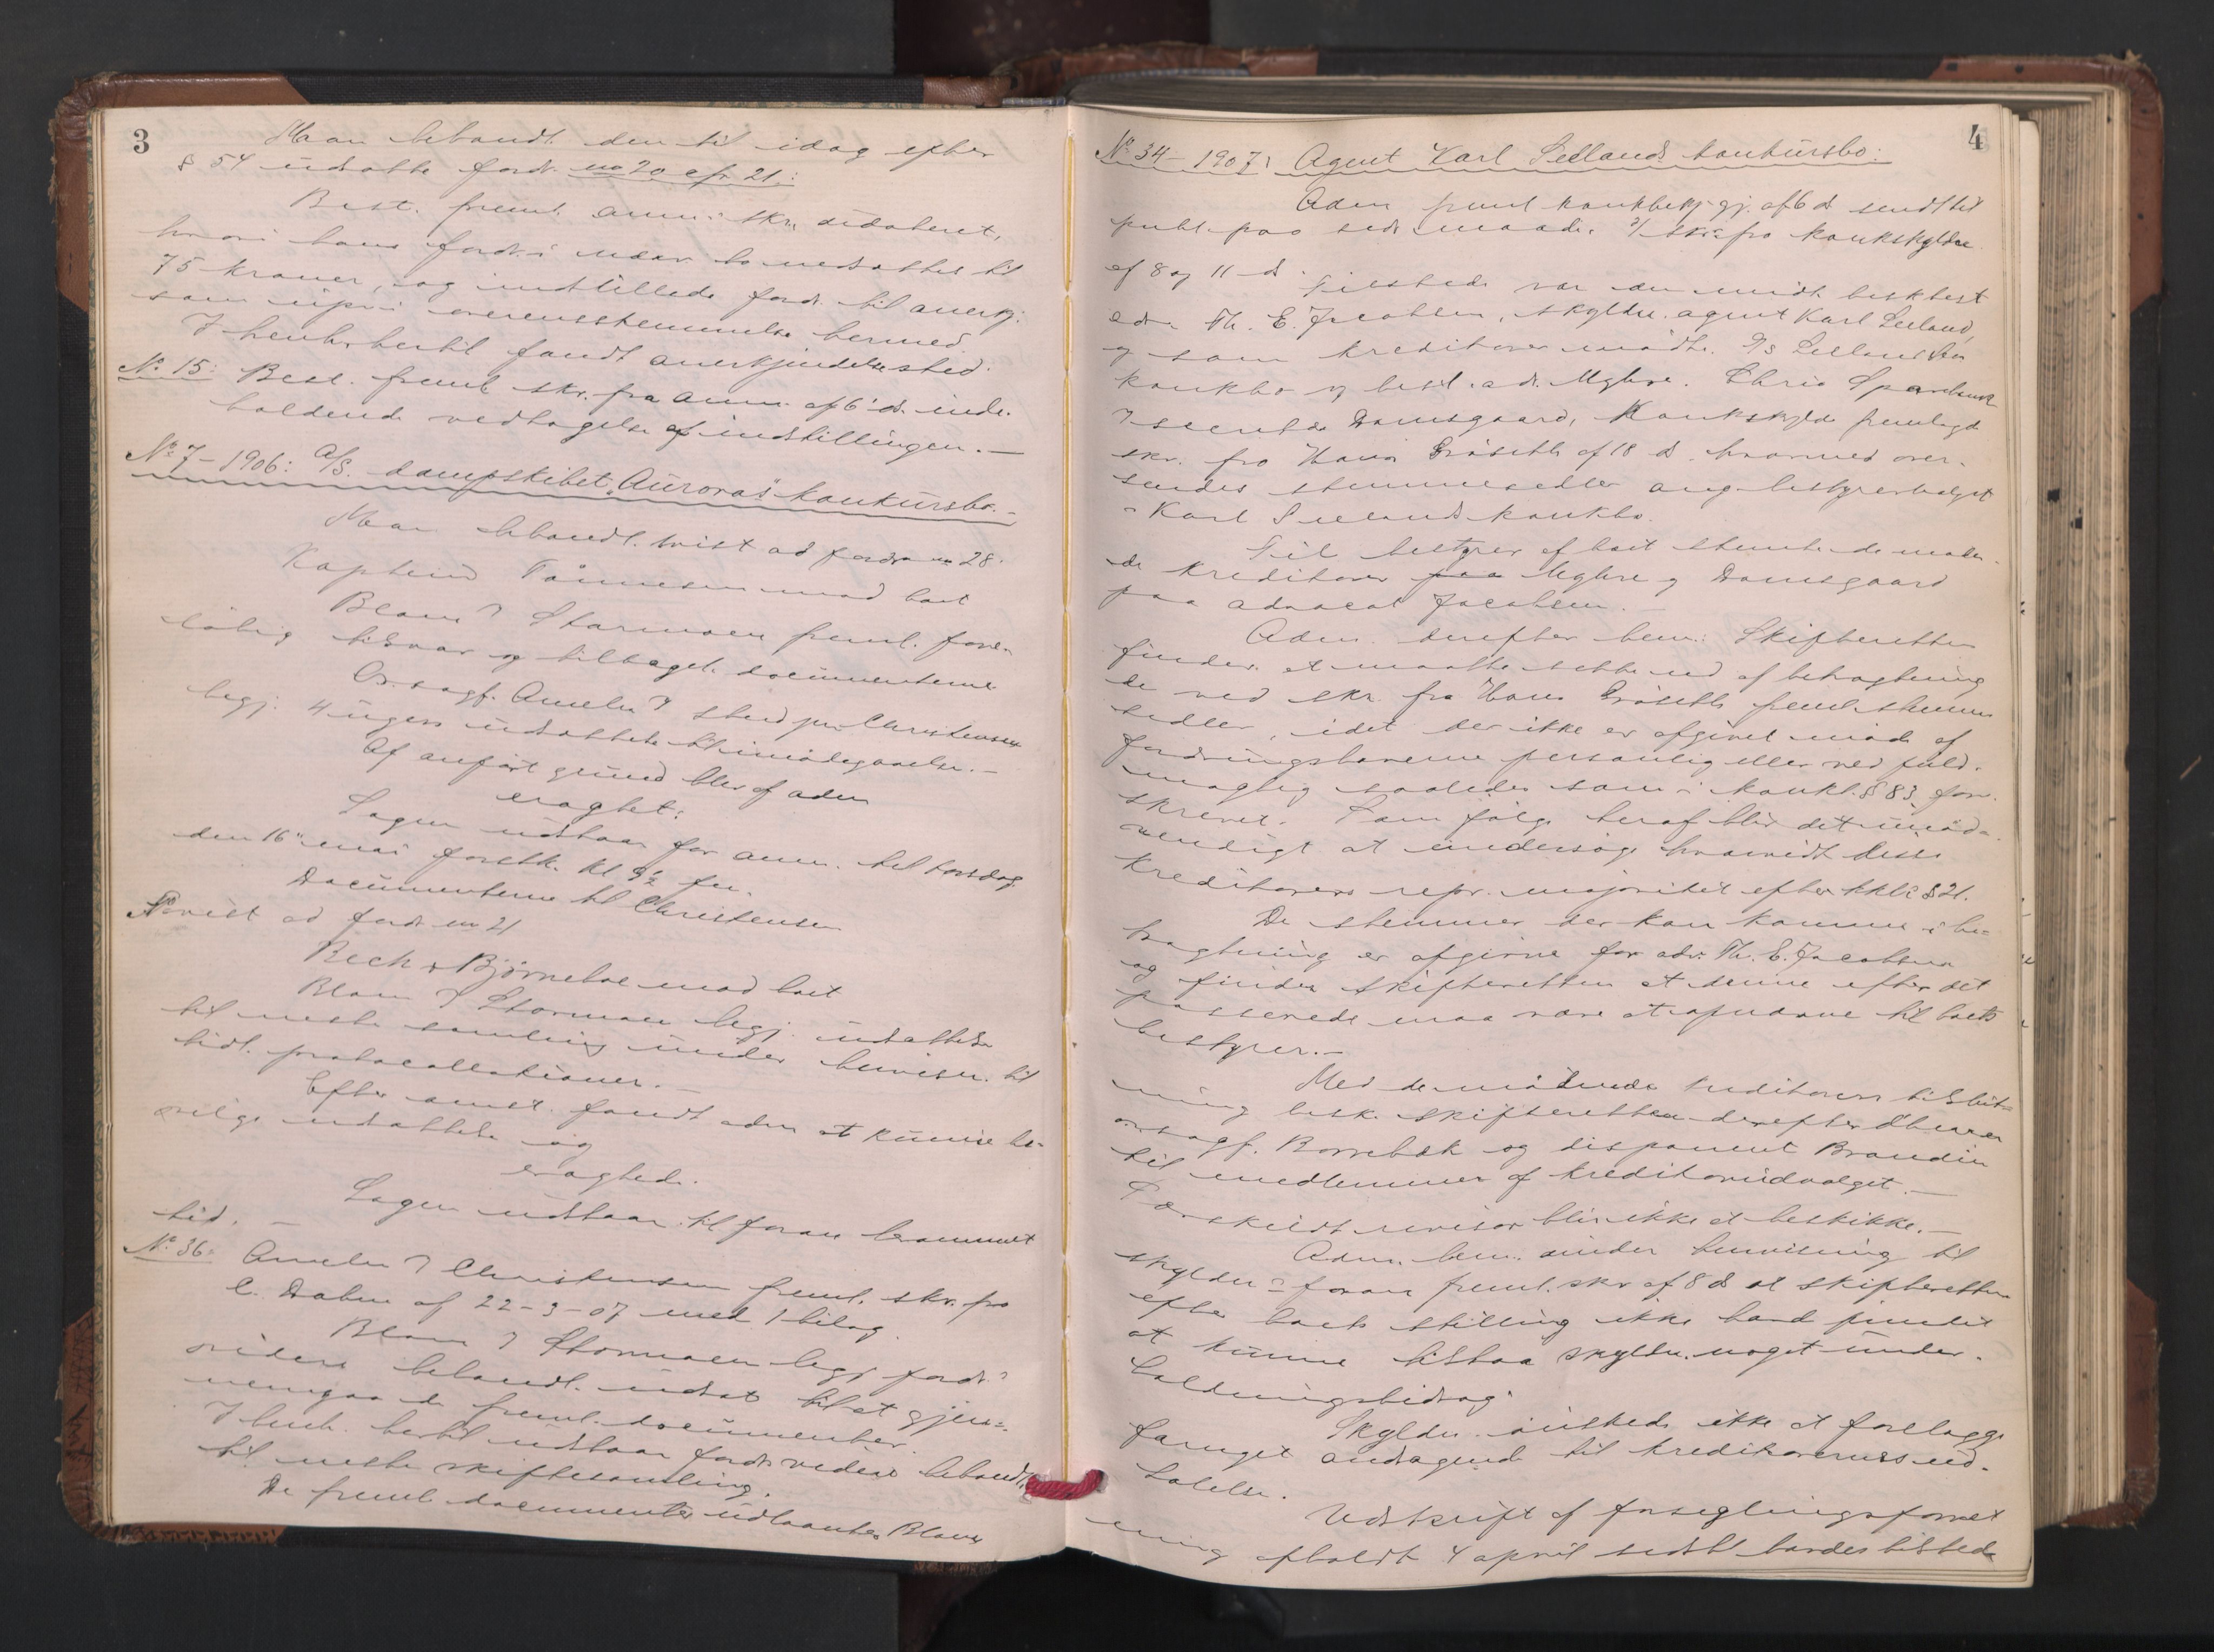 3
Man behandl. den til idag efter
§ 54 udsatte fordr. no 20 cfr 21:
Best. freml. anm: skr. udateret,
hvori hans fordr. i nærv. bo nedsattes til
75 kroner, og indstillede fordr. til anerkj.
som uprior. i overensstemmelse hermed.
I henh. hertil fandt anerkjendelse sted.
No. 15: Best. freml. skr. fra anm. af 6' ds. inde-
holdende vedtagelse af indstillingen. —
No. 7 - 1906: A/S. dampskibet "Auroras" konkursbo. -
Man behandl. tvist ad fordr no 28.
Kaptein Tönnesen mod boet
Blom ? Stormoen freml. fore-
löbig tilsvar og tilbagel. documenterne
Or. sagf. Ameln ? sted per Christensen
begj. 4 ugers udsættelse t. imödegaaelse. -
Af anfört grund blev af adm
eragtet:
Sagen udstaar for anm. til torsdag
den 16de mai förstk. kl 9½ fm.
Documenterne til Christensen
Tvist ad fordr no 21
Rech & Björneboe mod boet
Blom ? Stormoen begj. udsættelse
til neste samling under henvisn. til
tidl. protocollationer. -
Efter omst. fandt adm at kunne be-
vilge udsættelse og
eragtede.
Sagen udstaar til foran berammet
tid. -
No. 36: Ameln ? Christensen freml. skr. fra
C. Dahm af 22-3-07 med 1 bilag.
Blom ? Stormoen begj fordr.s
videre behandl. udsat til at gjen-
nemgaa de freml. documenter.
I henh. hertil udstaar fordr. videre behandl.
til neste skiftesamling.
De freml documenter udlaantes Blom
4
No. 34 - 1907: Agent Karl Seelands konkursbo:
Adm freml konkbekj gj. af 6 ds sendt til
publ. paa sedv. maade. 2/ skr. fra konkskyldn
af 8 og 11 ds.
Tilstede var den midl. best. best
adv. Th. E. Jacobsen, skyldn. agent Karl Seeland,
og som kreditorer mödte. I/s Seeland
konkbo v/ best. adv. Myhre. Chria Sparebank
? secretær Damsgaard, Konkskyldn fremlagde
skr. fra Hans Gröseth af 18 ds. hvormed over-
sendes stemmesedler ang. bestyrervalget
i Karl Seelands konkbo.
Til bestyrer af boet stemte de möden-
de kreditorer paa Myhre og Damsgaard
paa advocat Jacobsen. -
Adm. derefter bem: Skifteretten
finder at maatte sette ud af betragtning
de ved skr. fra Hans Gröseth freml. stemme
sedler, idet der ikke er afgivet möde af
fordringshaverne personlig eller ved fuld-
mægtig saaledes som i konkl. § 83 fore-
skrevet. Som fölge heraf blir det unöd-
vendigt at undersöge hvorvidt disse
kreditorer repr. majoritet efter kkl.s § 21.
De stemmer der kan komme i be-
tragtning er afgivne for adv. Th. E. Jacobsen
og finder skifteretten at denne efter det
passerede maa være at opnævne til boets
bestyrer. -
Med de mödende kreditorers tilslut-
ning besk. skifteretten derefter
orsagf. Borrebæk og disponent Brandin
til medlemmer af kreditorudvalget. -
Særskildt revisor blir ikke at beskikke. -
Adm. bem. under henvisning til
skyldn.s foran freml. skr. af 8 ds at skifteretten
efter boets stilling ikke havde fundet
at kunne tilstaa skyldn. noget under-
holdningsbidrag.
Skyldn. önskede ikke at forelægge
fornyet andragende til kreditorernes ud-
talelse.
Udskrift af forseglingsforret
ning afholdt 4 april sidstl. havdes tilstede